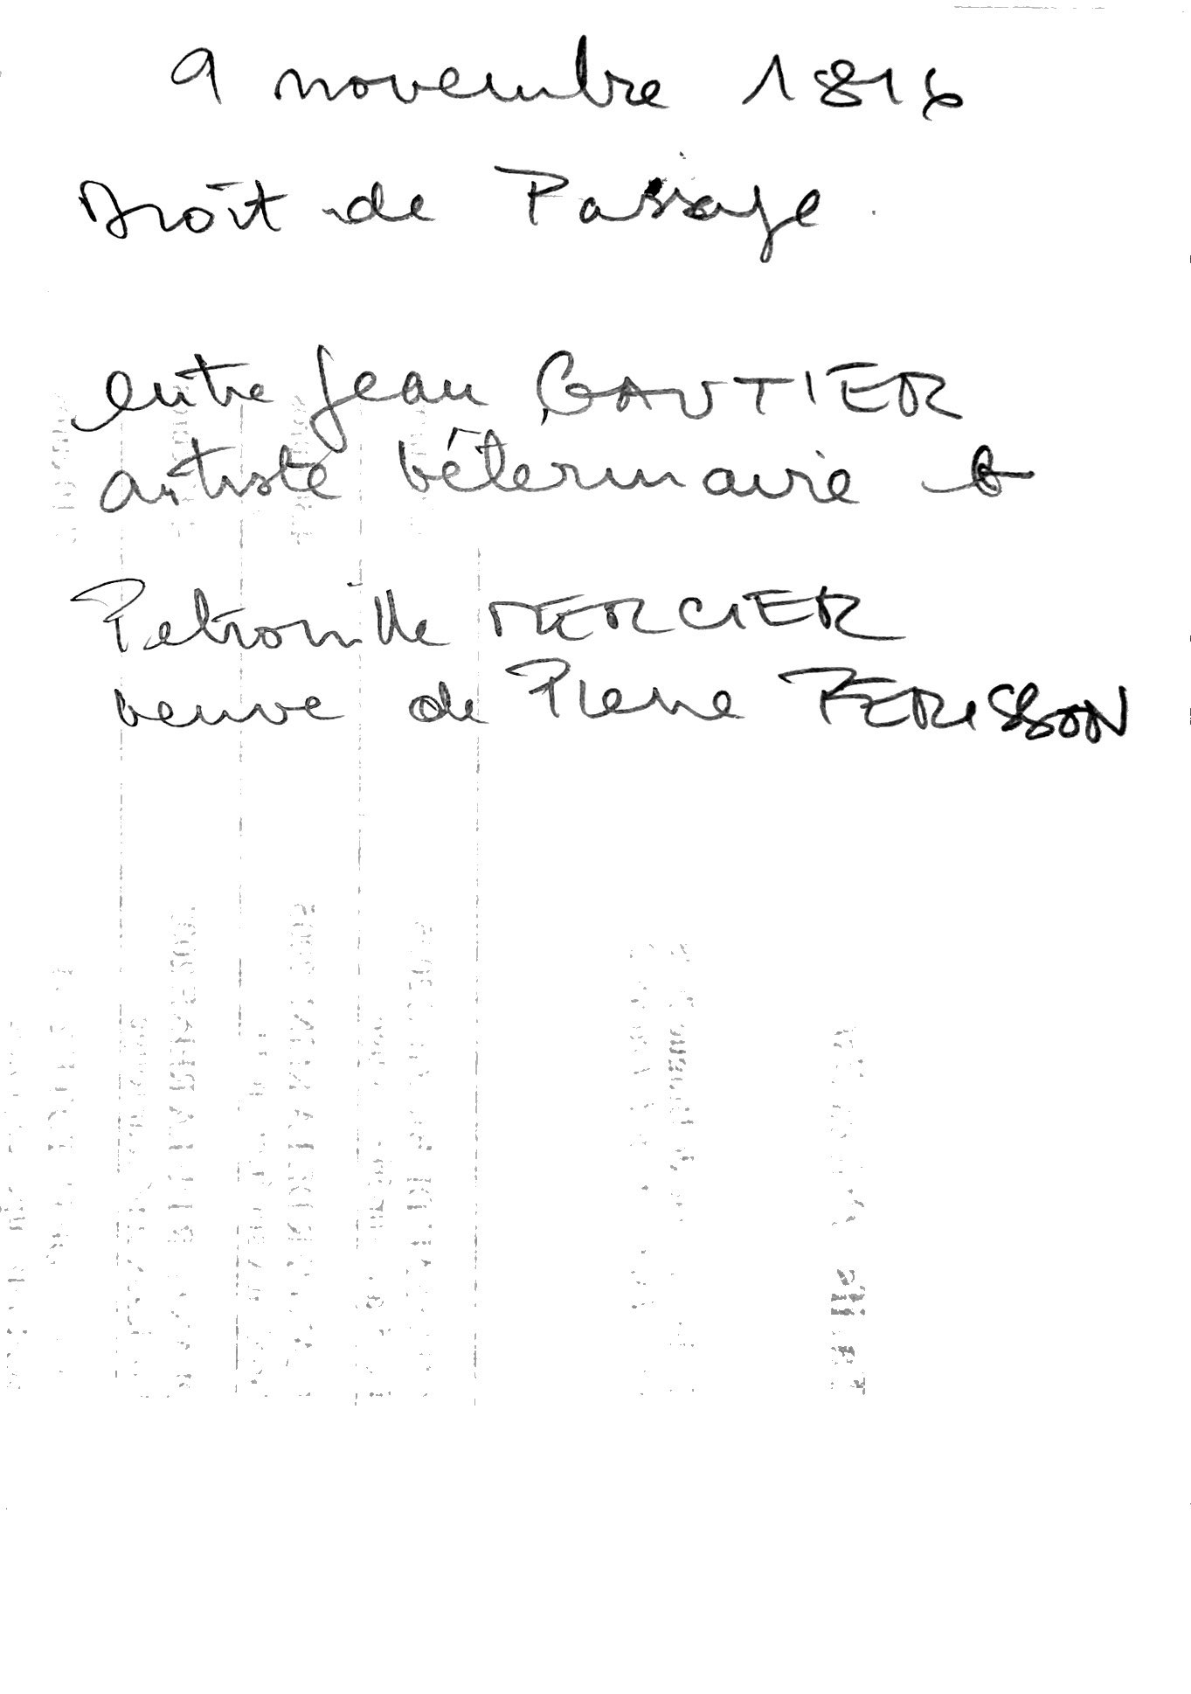 9 novembre 1816
Droit de Passage.
entre Jean GAUTIER
artiste véterinaire et
Petronille MERCIER
veuve de Pierre PERISSON